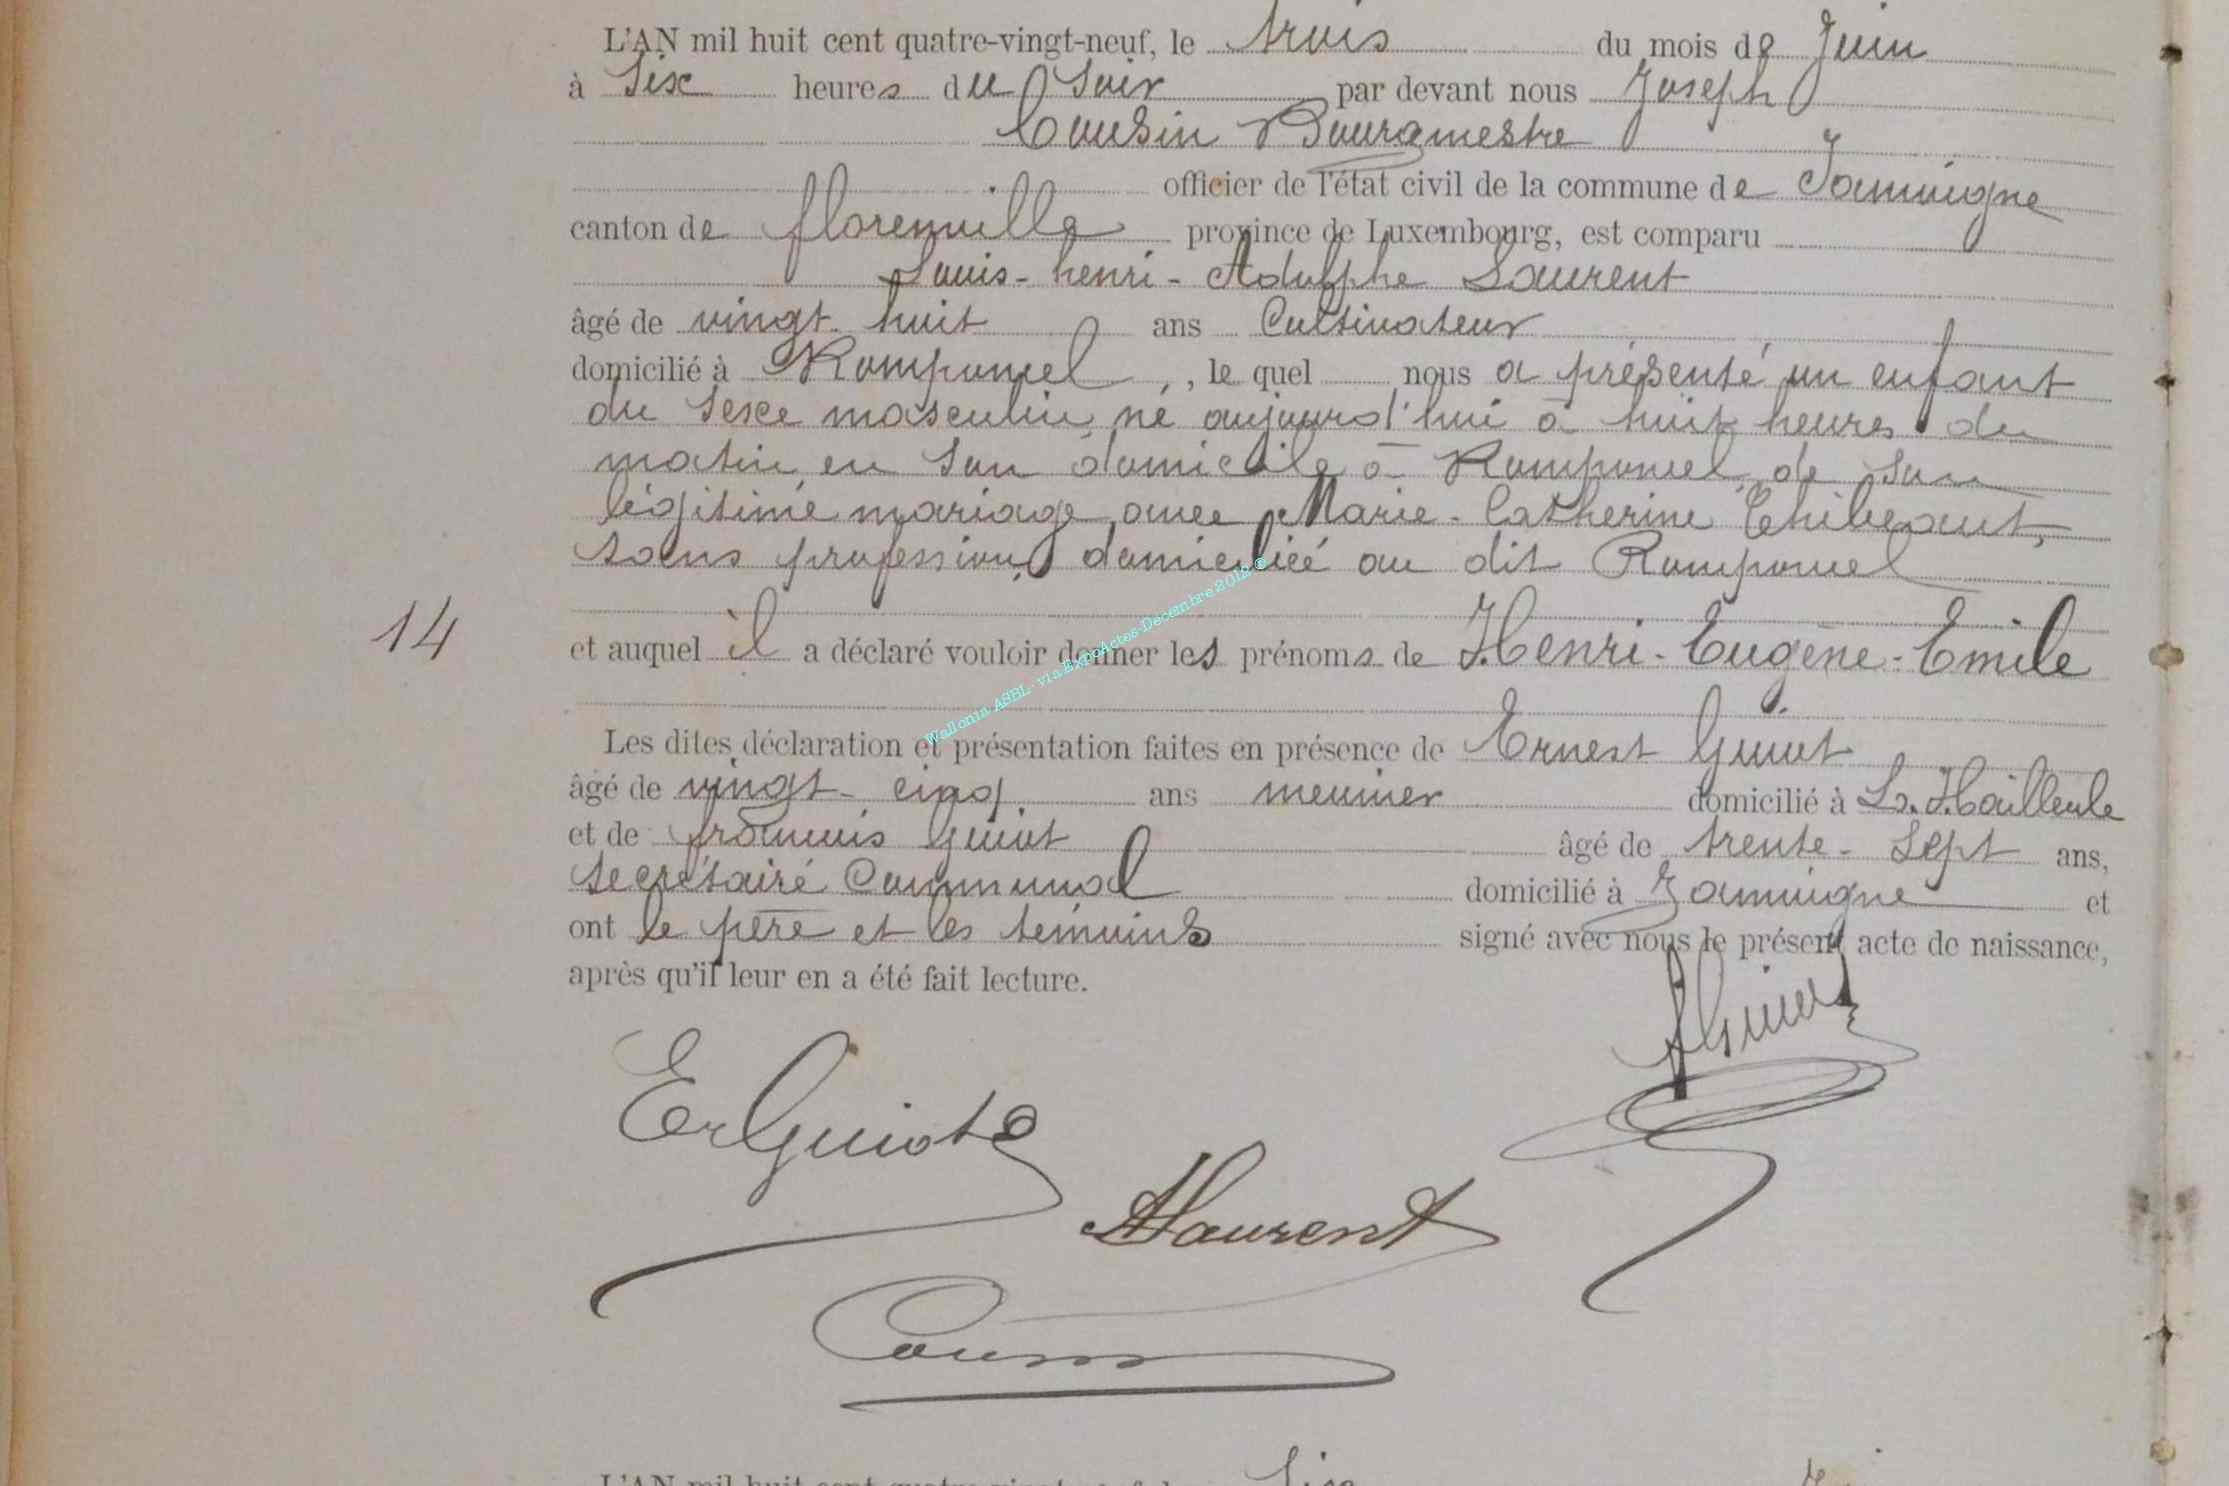 L'AN mil huit cent quatre-vingt-neuf, le trois du mois de Juin
à Six heures du Soir par devant nous Joseph
Cousin Bourgmestre
officier de l'état civil de la commune de Jamoigne
canton de florenville province de Luxembourg, est comparu
Louis-henri-Adolphe Laurent
âgé de vingt huit ans Cultivateur
domicilié à Romponcel, , le quel nous a présenté un enfant
du Sexe masculin, né aujourd'hui à huit heures du
matin, en Son domicile à Romponcel, de Son
légitime mariage avec Marie-Catherine Thibeaut,
sans profession, domiciliée au dit Romponcel
14
et auquel il a déclaré vouloir donner les prénoms de Henri-Eugène-Emile
Wallonia ASBL - via ExpoActes-Décembre 2012 ©
Les dites déclaration et présentation faites en présence de Ernest Guiot
âgé de vingt-cinq ans meunier domicilié à La Hailleule
et de françois Guiot âgé de trente-Sept ans,
Secrétaire Communal domicilié à Jamoigne et
ont le père et les témoins signé avec nous le présent acte de naissance,
après qu'il leur en a été fait lecture.
FGuiot
ErGuiot
ALaurent
Cousin
L'AN mil huit cent quatre-vingt-neuf, le Six